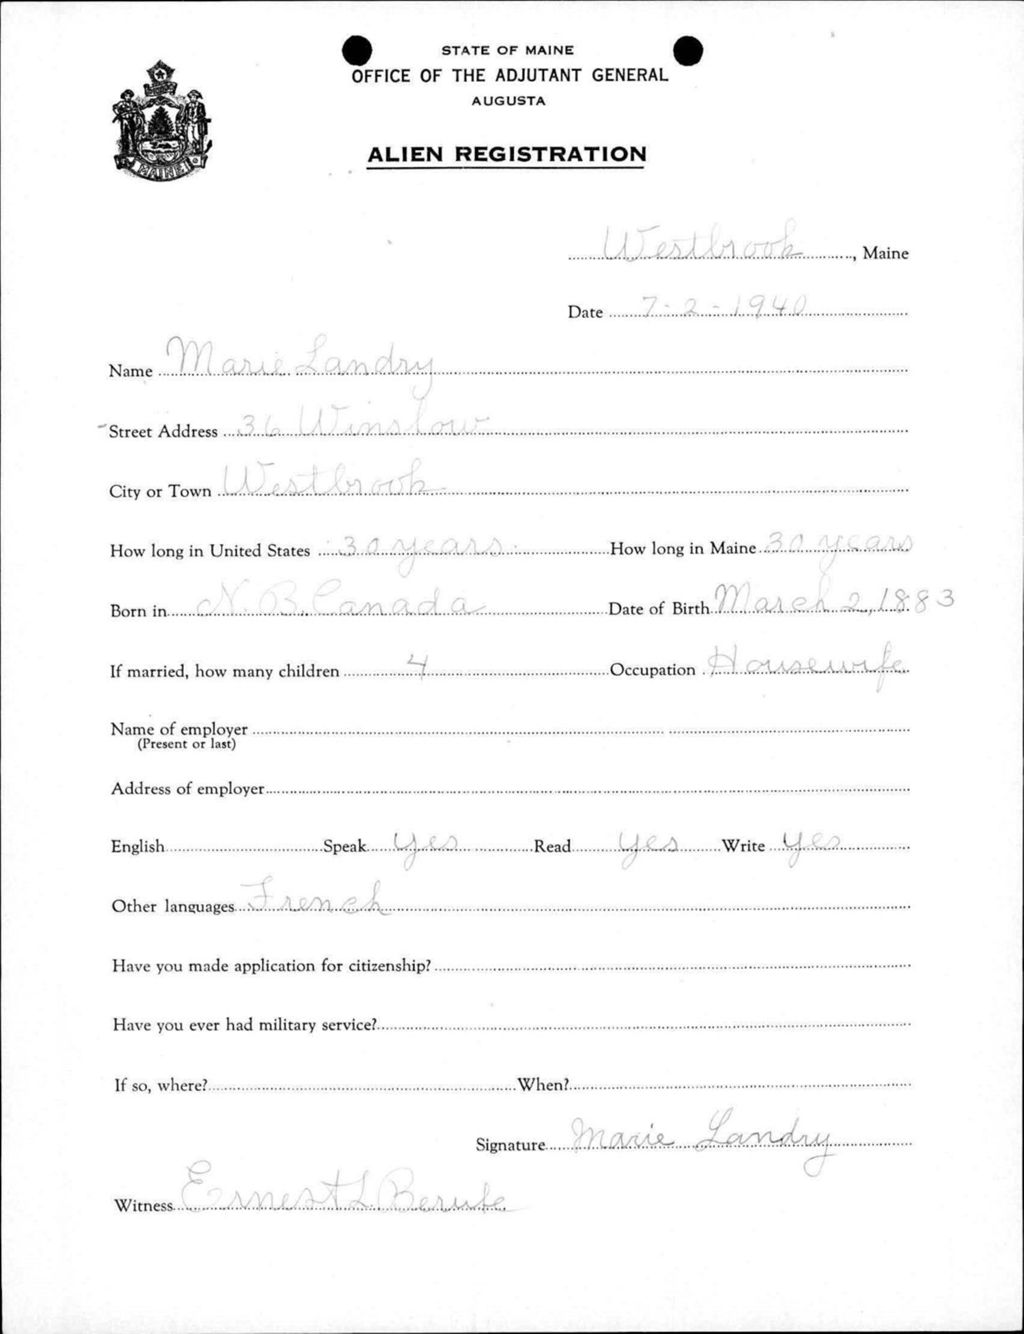 STATE OF MAINE
OFFICE OF THE ADJUTANT GENERAL
AUGUSTA
ALIEN REGISTRATION
MAINE
Westbrook, Maine
Date 7-2-1940
Name Marie Landry
Street Address 36 Winslow
City or Town Westbrook
How long in United States 30 years How long in Maine 30 years
Born in N. B. Canada Date of Birth March 2, 1883
If married, how many children 4 Occupation Housewife
Name of employer
(Present or last)
Address of employer
English Speak Yes Read Yes Write Yes
Other languages French
Have you made application for citizenship?
Have you ever had military service?
If so, where? When?
Signature Marie Landry
Witness Ernest L